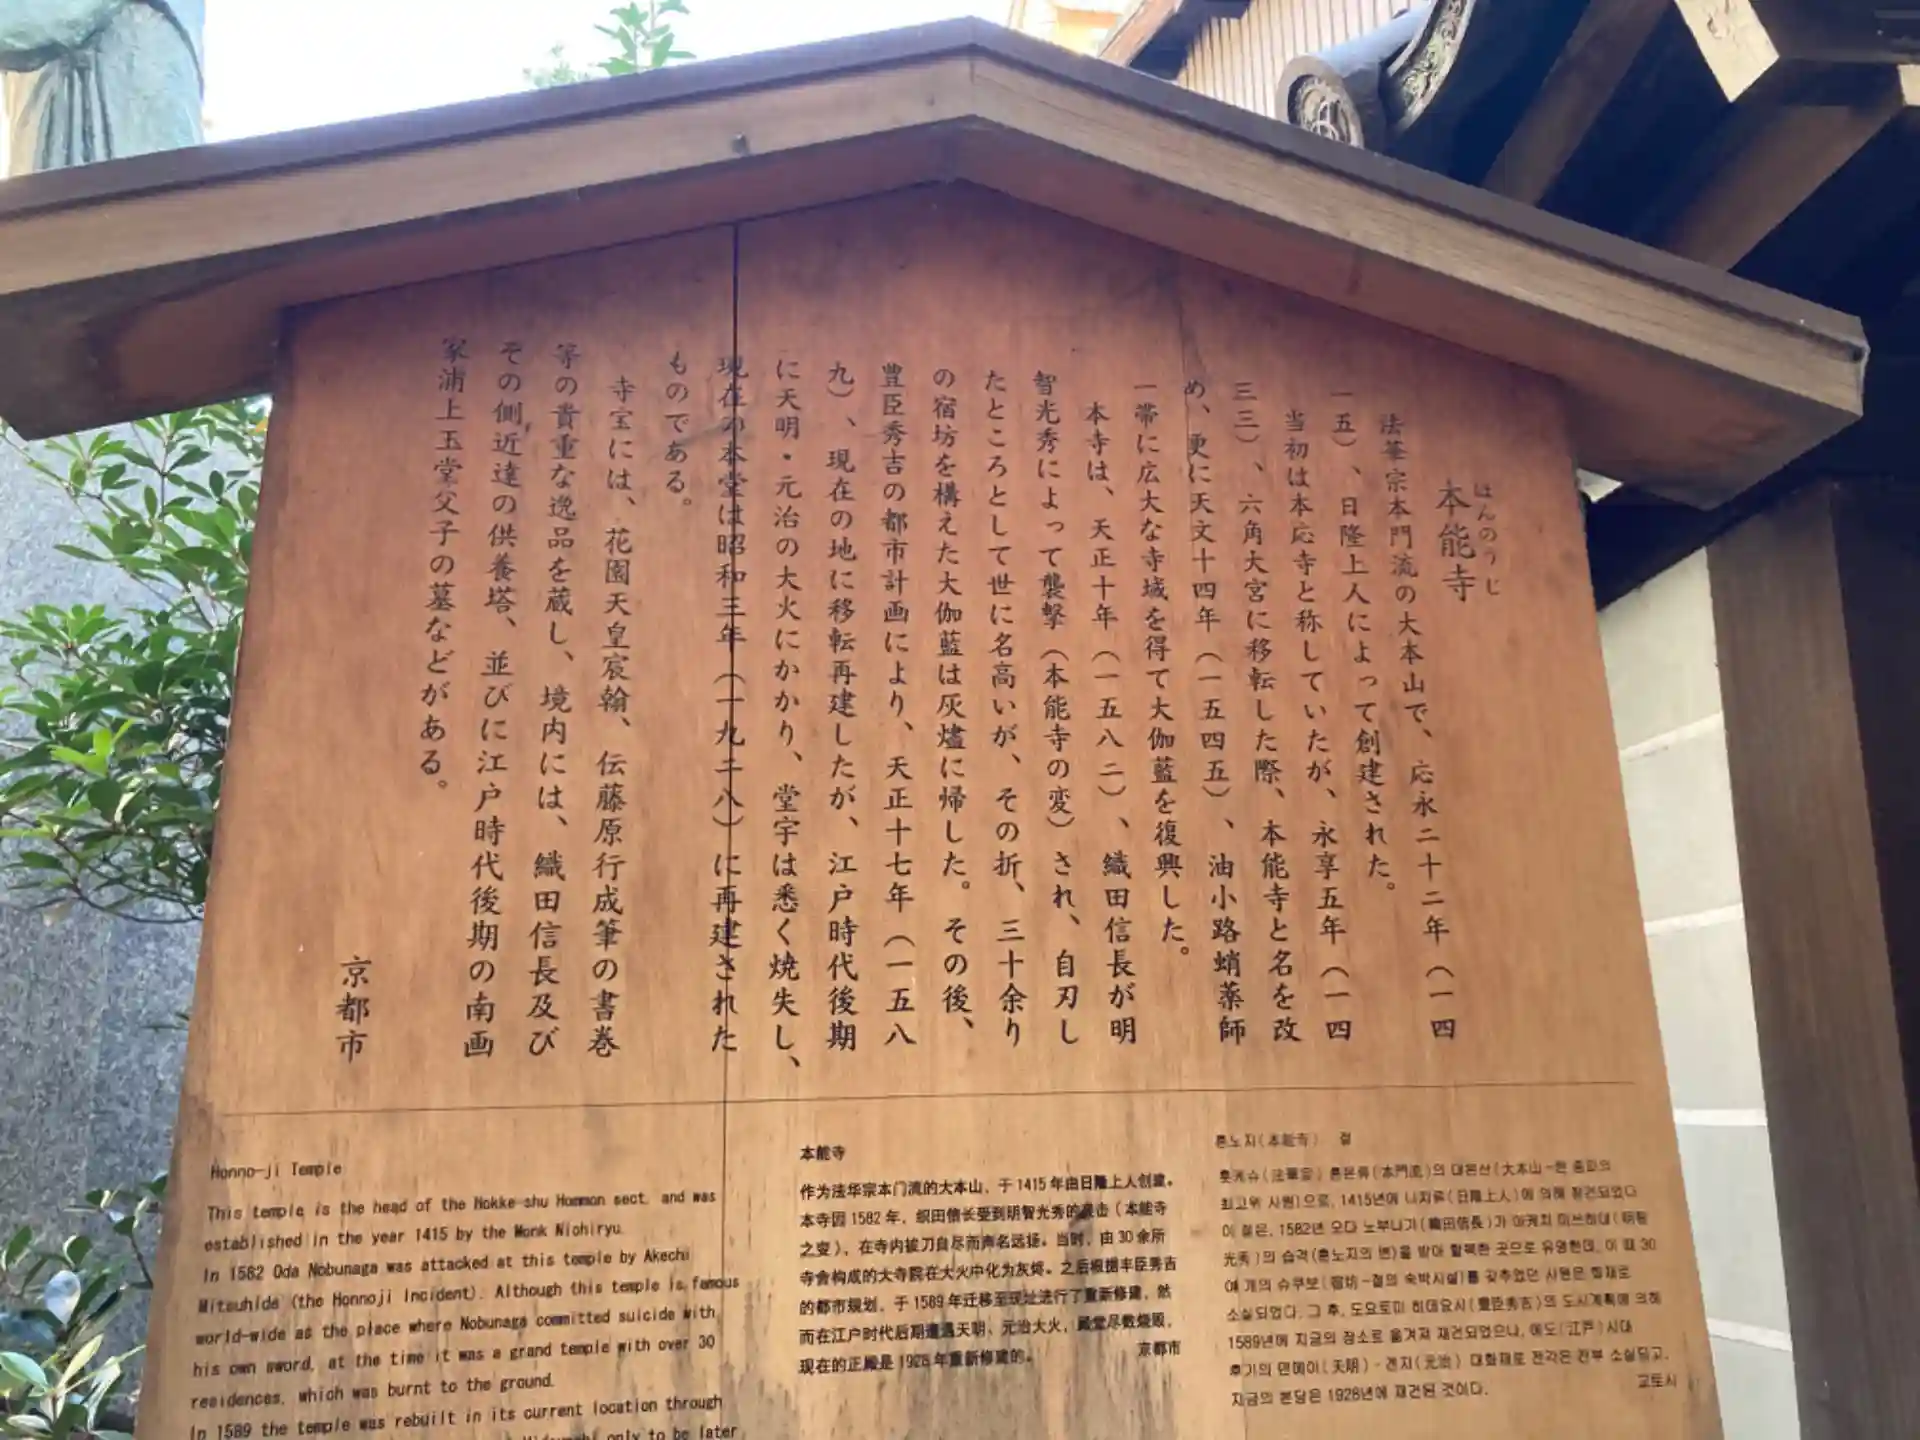 ほんのうじ
本能寺
法華宗本門流の大本山で、応永二十二年（一四
一五）、日隆上人によって創建された。
当初は本応寺と称していたが、永享五年（一四
三三）、六角大宮に移転した際、本能寺と名を改
め、更に天文十四年（一五四五）、油小路蛸薬師
一帯に広大な寺域を得て大伽藍を復興した。
本寺は、天正十年（一五八二）、織田信長が明
智光秀によって襲撃（本能寺の変）され、自刃し
たところとして世に名高いが、その折、三十余り
の宿坊を構えた大伽藍は灰燼に帰した。その後、
豊臣秀吉の都市計画により、天正十七年（一五八
九）、現在の地に移転再建したが、江戸時代後期
に天明・元治の大火にかかり、堂宇は悉く焼失し、
現在の本堂は昭和三年（一九二八）に再建された
ものである。
寺宝には、花園天皇宸翰、伝藤原行成筆の書巻
等の貴重な逸品を蔵し、境内には、織田信長及び
その側近達の供養塔、並びに江戸時代後期の南画
家浦上玉堂父子の墓などがある。
京都市
Honno-ji Temple
This temple is the head of the Hokke-shu Hommon sect, and was
established in the year 1415 by the Monk Nichiryu.
In 1582 Oda Nobunaga was attacked at this temple by Akechi
Mitsuhide (the Honnoji Incident). Although this temple is famous
world-wide as the place where Nobunaga committed suicide with
his own sword, at the time it was a grand temple with over 30
residences, which was burnt to the ground.
In 1589 the temple was rebuilt in its current location through
only to be later
本能寺
作为法华宗本门流的大本山，于1415年由日隆上人创建。
本寺因1582年，织田信长受到明智光秀的袭击（本能寺
之变），在寺内拔刀自尽而声名远扬。当时，由30余所
寺舍构成的大寺院在大火中化为灰烬。之后根据丰臣秀吉
的都市规划，于1589年迁移至现址进行了重新修建，然
而在江户时代后期遭遇天明、元治大火，殿堂尽数烧毁，
现在的正殿是1928年重新修建的。
京都市
혼노지(本能寺) 절
홋케슈(法華宗) 혼몬류(本門流)의 대본산(大本山-한 종파의
최고위 사원)으로, 1415년에 니치류(日隆上人)에 의해 창건되었다.
이 절은, 1582년 오다 노부나가(織田信長)가 아케치 미쓰히데(明智
光秀)의 습격(혼노지의 변)을 받아 할복한 곳으로 유명한데, 이 때 30
여 개의 슈쿠보(宿坊-절의 숙박시설)를 갖추었던 사원은 화재로
소실되었다. 그 후, 도요토미 히데요시(豊臣秀吉)의 도시계획에 의해
1589년에 지금의 장소로 옮겨져 재건되었으나, 에도(江戸)시대
후기의 덴메이(天明)-겐지(元治) 대화재로 전각은 전부 소실되고,
지금의 본당은 1928년에 재건된 것이다.
교토시